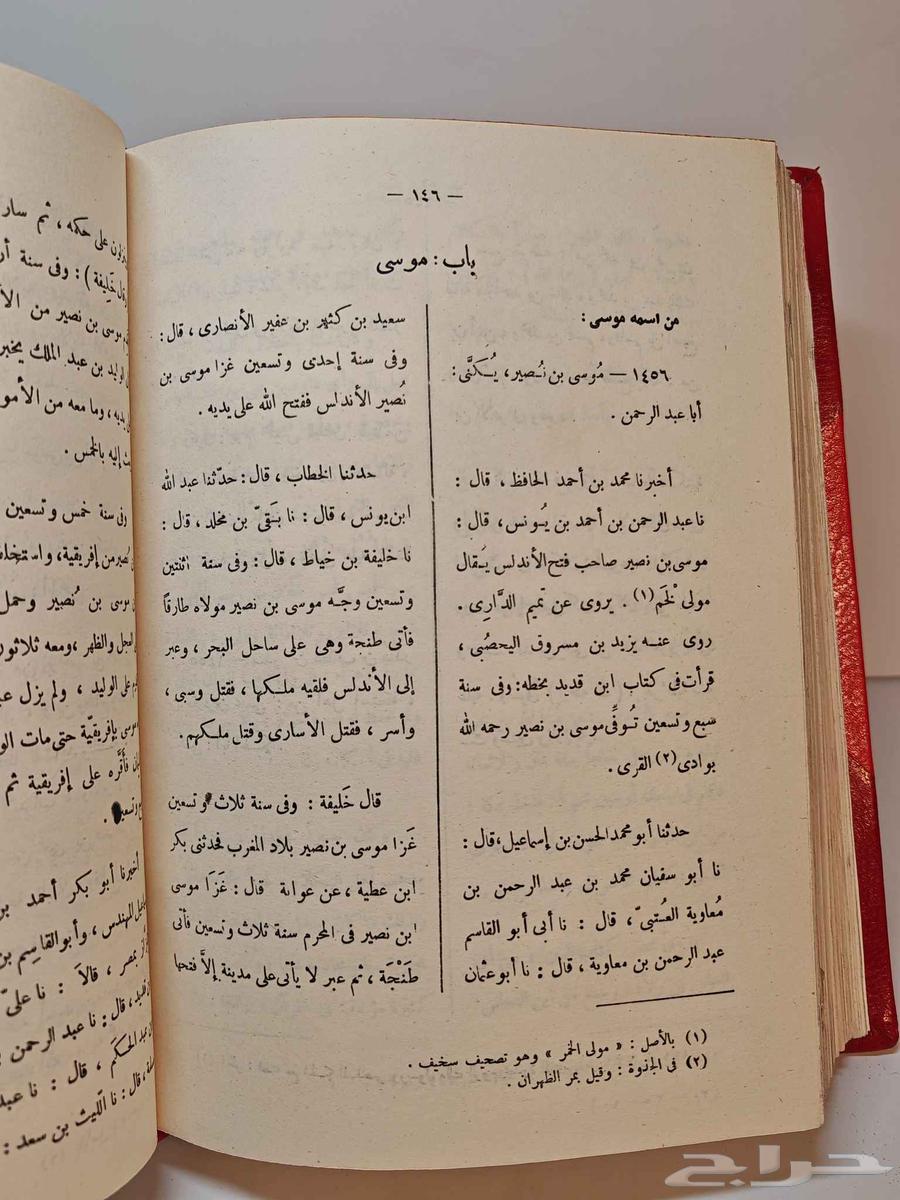 — ١٤٦ —
باب : موسى
من اسمه موسى :
١٤٥٦ — مُوسى بن نُصير، يُكَنَّى :
أبا عبد الرحمن .
أخبرنا محمد بن أحمد الحافظ ، قال :
نا عبد الرحمن بن أحمد بن يُونس ، قال :
موسى بن نصير صاحب فتح الأندلس يَقال
مولى لَخْم (١) . يروى عن تميم الدَّارى .
روى عنه يزيد بن مسروق اليحصُبى ،
قرأت فى كتاب ابن قديد بخطه : وفى سنة
سبع وتسعين تُوفِّى موسى بن نصير رحمه الله
بوادى (٢) القرى .
حدثنا أبو محمد الحسن بن إسماعيل ، قال :
نا أبو سفيان محمد بن عبد الرحمن بن
مُعاوية العُتبىّ ، قال : نا أبى أبو القاسم
عبد الرحمن بن معاوية ، قال : نا أبو عثمان
سعيد بن كثير بن عفير الأنصارى ، قال :
وفى سنة إحدى وتسعين غزا موسى بن
نُصير الأندلس ففتح الله على يديه .
حدثنا الخطاب ، قال : حدّثنا عبد الله
ابن يونس ، قال : نا بَقىّ بن مخلد ، قال :
نا خليفة بن خياط ، قال : وفى سنة اثنتين
وتسعين وجَّه موسى بن نصير مولاه طارقاً
فأتى طنجة وهى على ساحل البحر ، وعبر
إلى الأندلس فلقيه ملكها ، فقتل وسبى ،
وأسر ، فقتل الأسارى وقتل ملكهم .
قال خَليفة : وفى سنة ثلاث وتسعين
غَزا موسى بن نصير بلاد المغرب فحدثنى بكر
ابن عطية ، عن عوانة قال : غَزَا موسى
ابن نصير فى المحرم سنة ثلاث وتسعين فأتى
طَنْجَة ، ثم عبر لا يأتى على مدينة إلاَّ فتحها
(١) بالأصل : « مولى الخمر » وهو تصحيف سخيف .
(٢) فى الجذوة : وقيل بمر الظهران .
على حكمه ، ثم سار
خَليفة ) : وفى سنة
موسى بن نصير من
الوليد بن عبد الملك يخبر
يديه ، وما معه من
إليه بالخمس .
وفى سنة خمس وتسعين
من إفريقية ، واستخلف
موسى بن نُصير وحمل
العجل والظهر ، ومعه ثلاثون
على الوليد ، ولم يزل
موسى بإفريقيّة حتى مات
فأقَرَّه على إفريقية ثم
وتسعين .
أخبرنا أبو بكر أحمد بن
المهندس ، وأبو القاسم بن
بمصر ، قالاَ : نا علىّ
قال : نا عبد الرحمن
عبد الحكم ، قال : نا
قال : نا الّليث بن سعد :
حراج